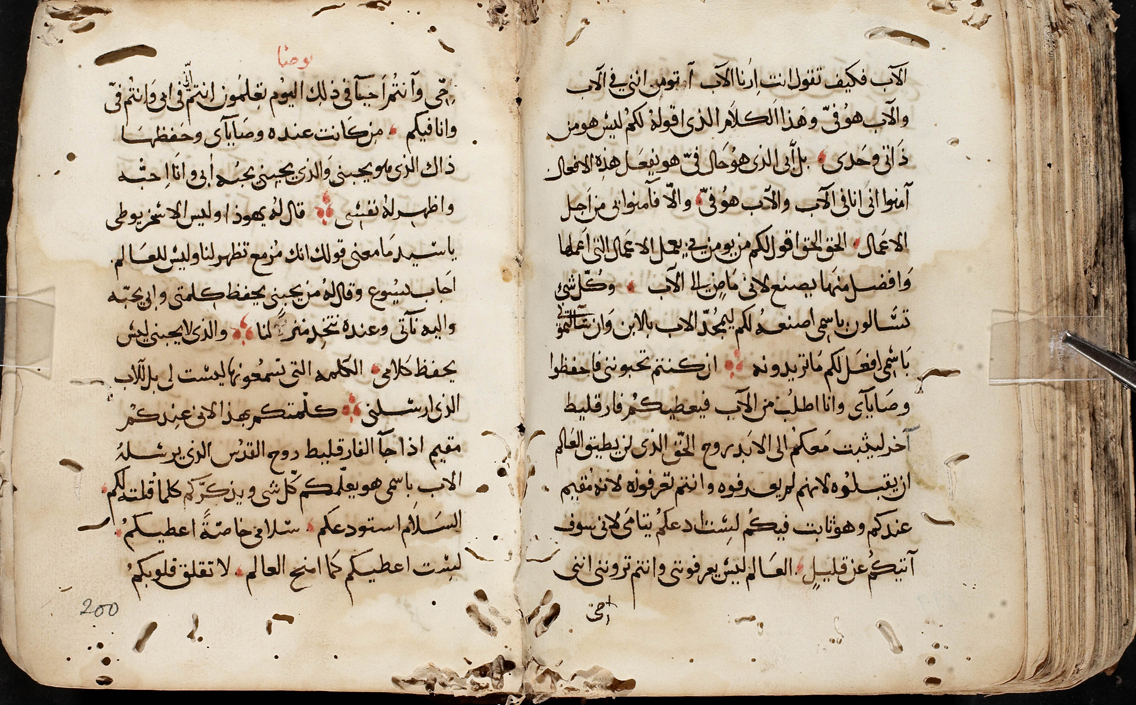 الاب فكيف تقول انت ارنا الاب أ تومن انني في الاب
والاب هو فيّ وهذا الكلام الذي اقوله لكم ليس هو من
ذاتي وحدي بل ابي الذي هو حال فيّ هو يفعل هذه الافعال
آمنوا اني انا في الاب والاب هو فيّ والّا فآمنوا بي من اجل
الاعمال الحق الحق اقول لكم من يومن بي يعمل الاعمال التي اعملها
وافضل منها يصنع لاني ماضٍ الى الاب وكلّ شي
تسالون باسمي اصنعه لكم ليمجدّ الاب بالابن وان سالتموني
باسمي افعل لكم ما تريدونه ان كنتم تحبونني فاحفظوا
وصاياي وانا اطلب من الاب فيعطيكم فارقليط
آخر ليثبت معكم الى الابد روح الحق الذي لن يطيق العالم
ان يقبلوه لانهم لم يعرفوه وانتم تعرفونه لانه مقيم
عندكم وهو ثابت فيكم لست ادعكم يتامى لاني سوف
آتيكم عن قليلٍ العالم ليس يعرفوني وانتم ترونني انني
احي
يوحنا
حي وانتم احيآ في ذلك اليوم تعلمون انني في ابي وانتم فيّ
وانا فيكم من كانت عنده وصاياي وحفظها
ذاك الذي هو يحبني والذي يحبني يحبه ابي وانا احبّه
واظهر له نفسي قال له يهوذا وليس الاسخريوطي
يا سيد ما معنى قولك انك مزمع تظهر لنا وليس للعالم
اجاب يسوع وقال له من يحبني يحفظ كلمتي وابي يحبّه
واليه نآتي وعنده نتخذ منزلًا لنا والذي لا يحبني ليس
يحفظ كلامي الكلمه التي تسمعونها ليست لي بل للاب
الذي ارسلني كلّمتكم بهذا لاني عندكم
مقيم اذا جآ الفارقليط روح القدس الذي يرسله
الاب باسمي هو يعلّمكم كلّ شي ويذكّركم كلما قلته لكم
السلام استودعكم سلامي خاصةً اعطيكم
ليست اعطيكم كما امنح العالم لا تقلق قلوبكم
200